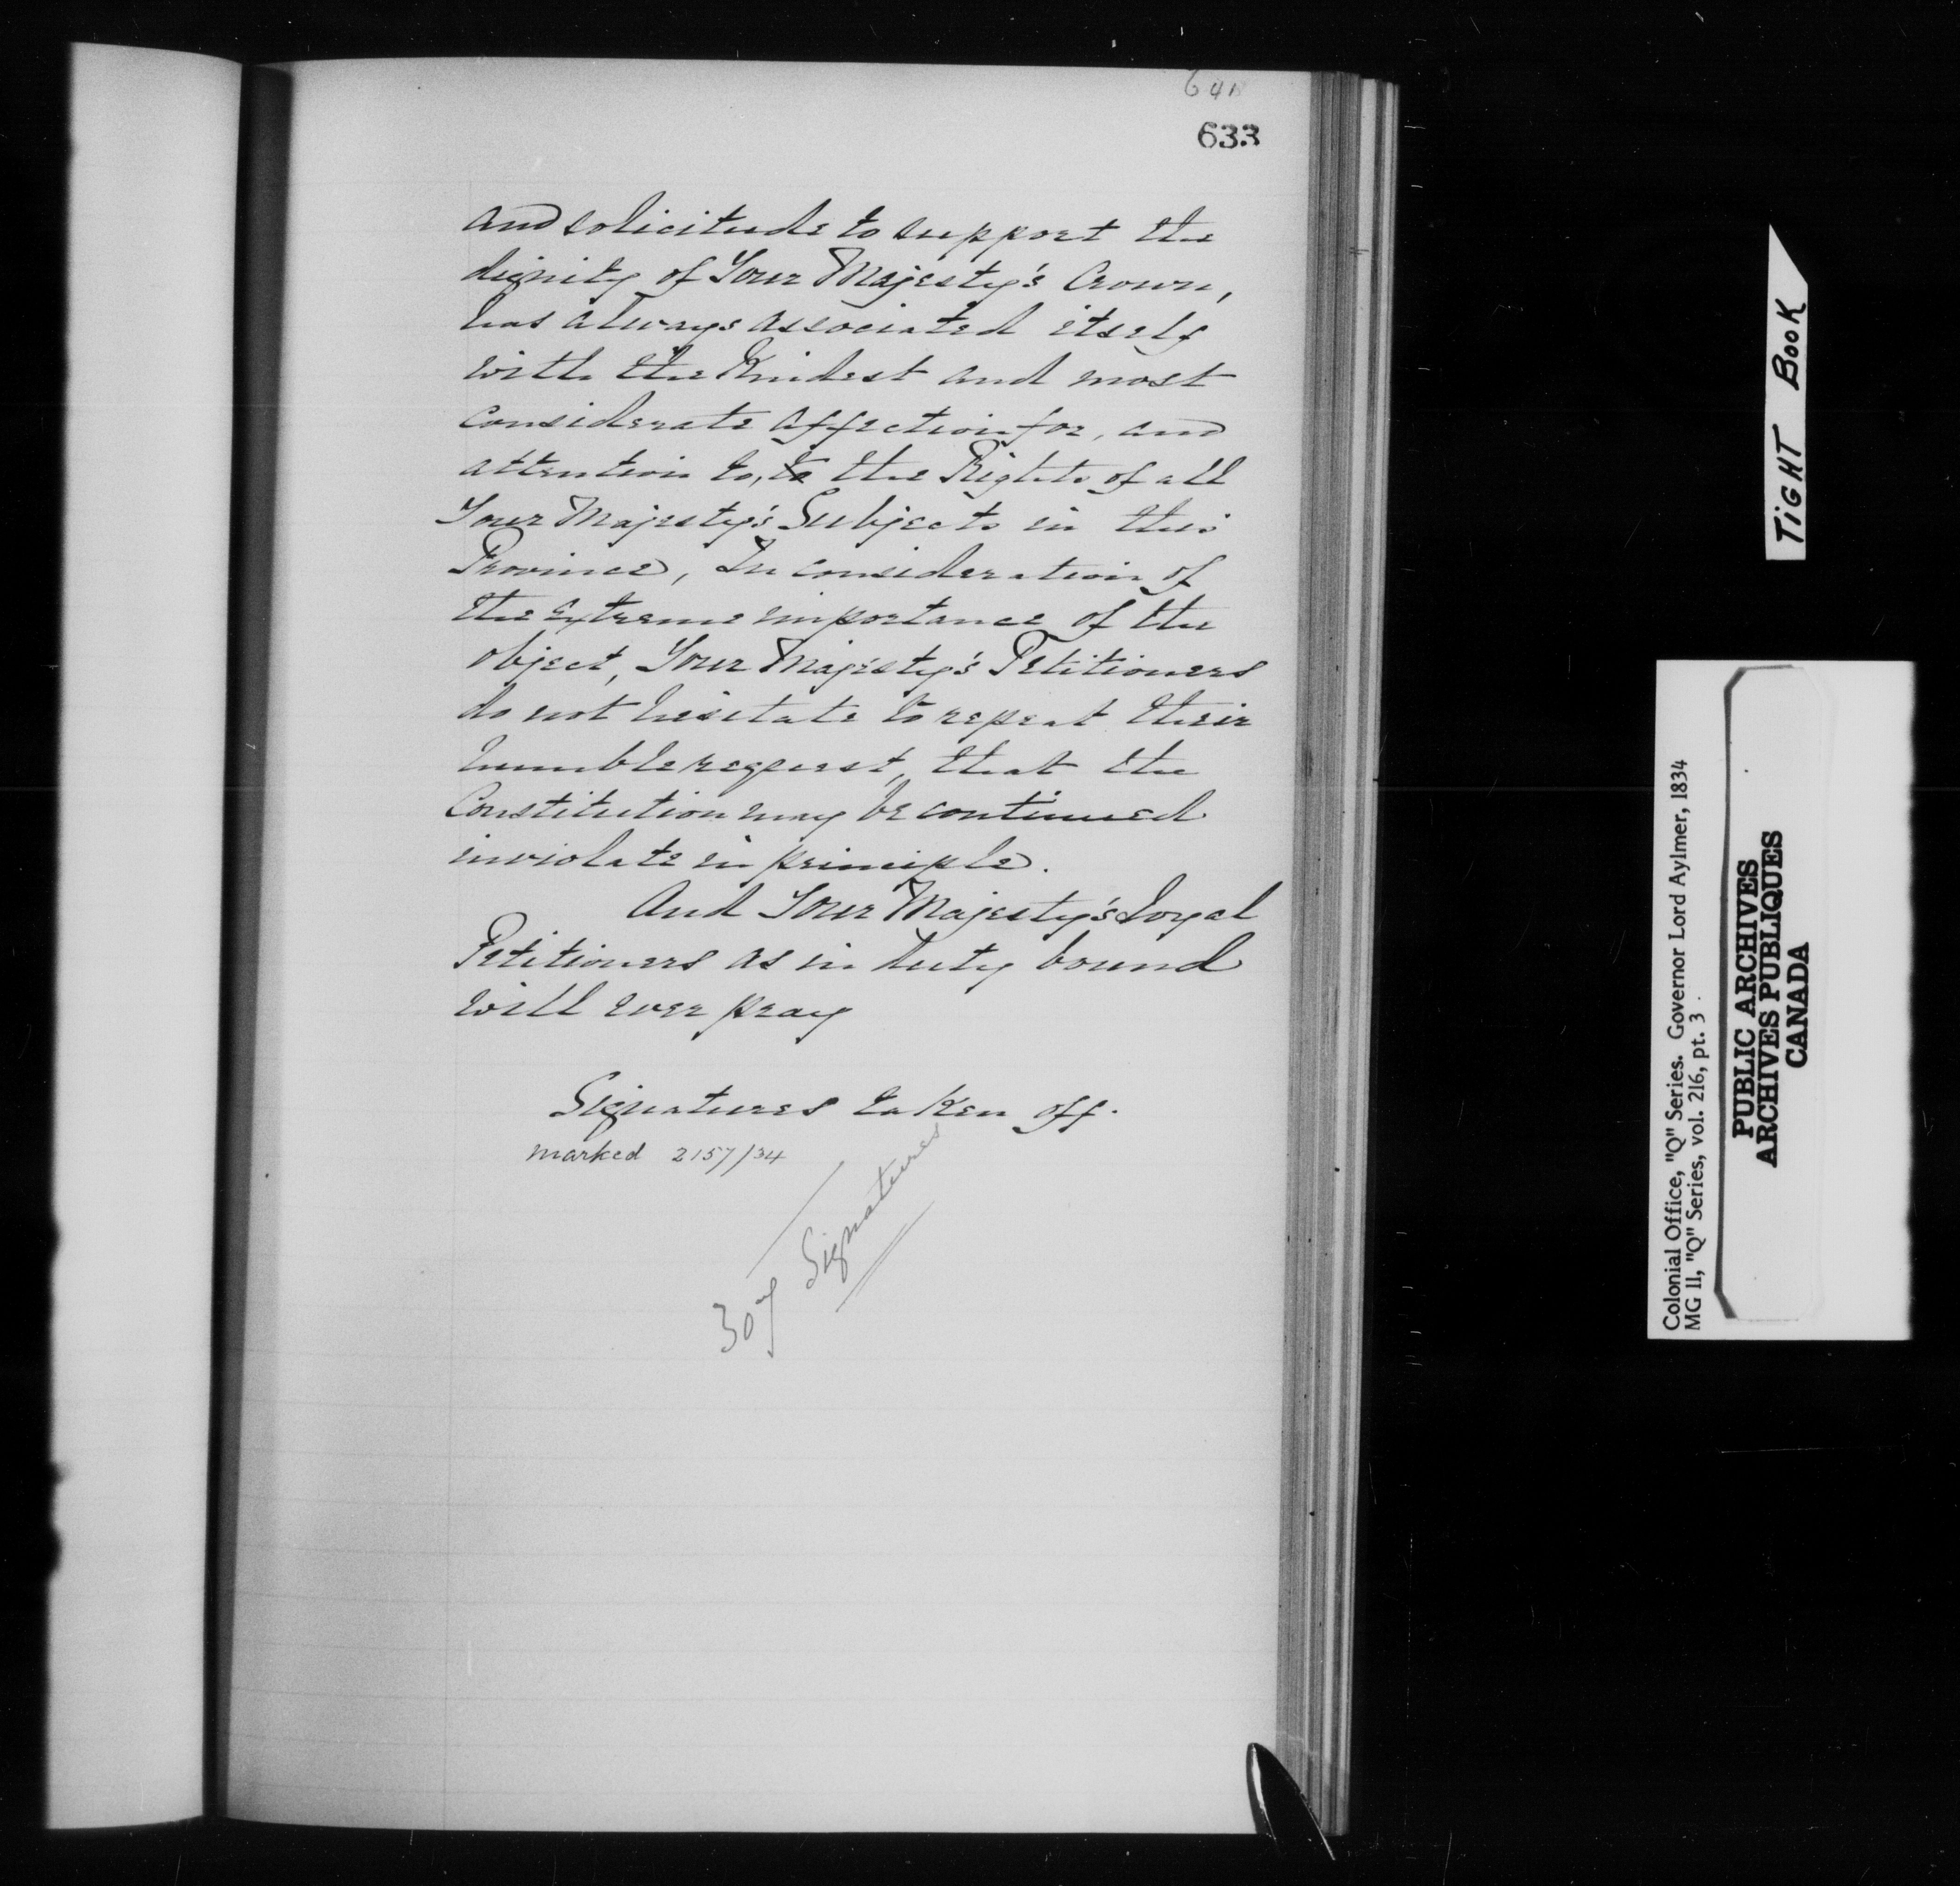 633
and solicitude to support the
dignity of Your Majesty's Crown,
has always associated itself
with the Kindest and most
considerate affection for, and
attention to, to the Rights of all
Your Majesty's Subjects in this
Province, In consideration of
the extreme importance of the
object, Your Majesty's Petitioners
do not hesitate to repeat their
humble request, that the
Constitution may be continued
inviolate in principle.
And Your Majesty's Loyal
Petitioners as in duty bound
will ever pray
Signatures taken off.
marked 2157/34
Signatures
TiGHT BOOK
Colonial Office, "Q" Series. Governor Lord Aylmer, 1834
MG 11, "Q" Series, vol. 216, pt. 3
PUBLIC ARCHIVES
ARCHIVES PUBLIQUES
CANADA